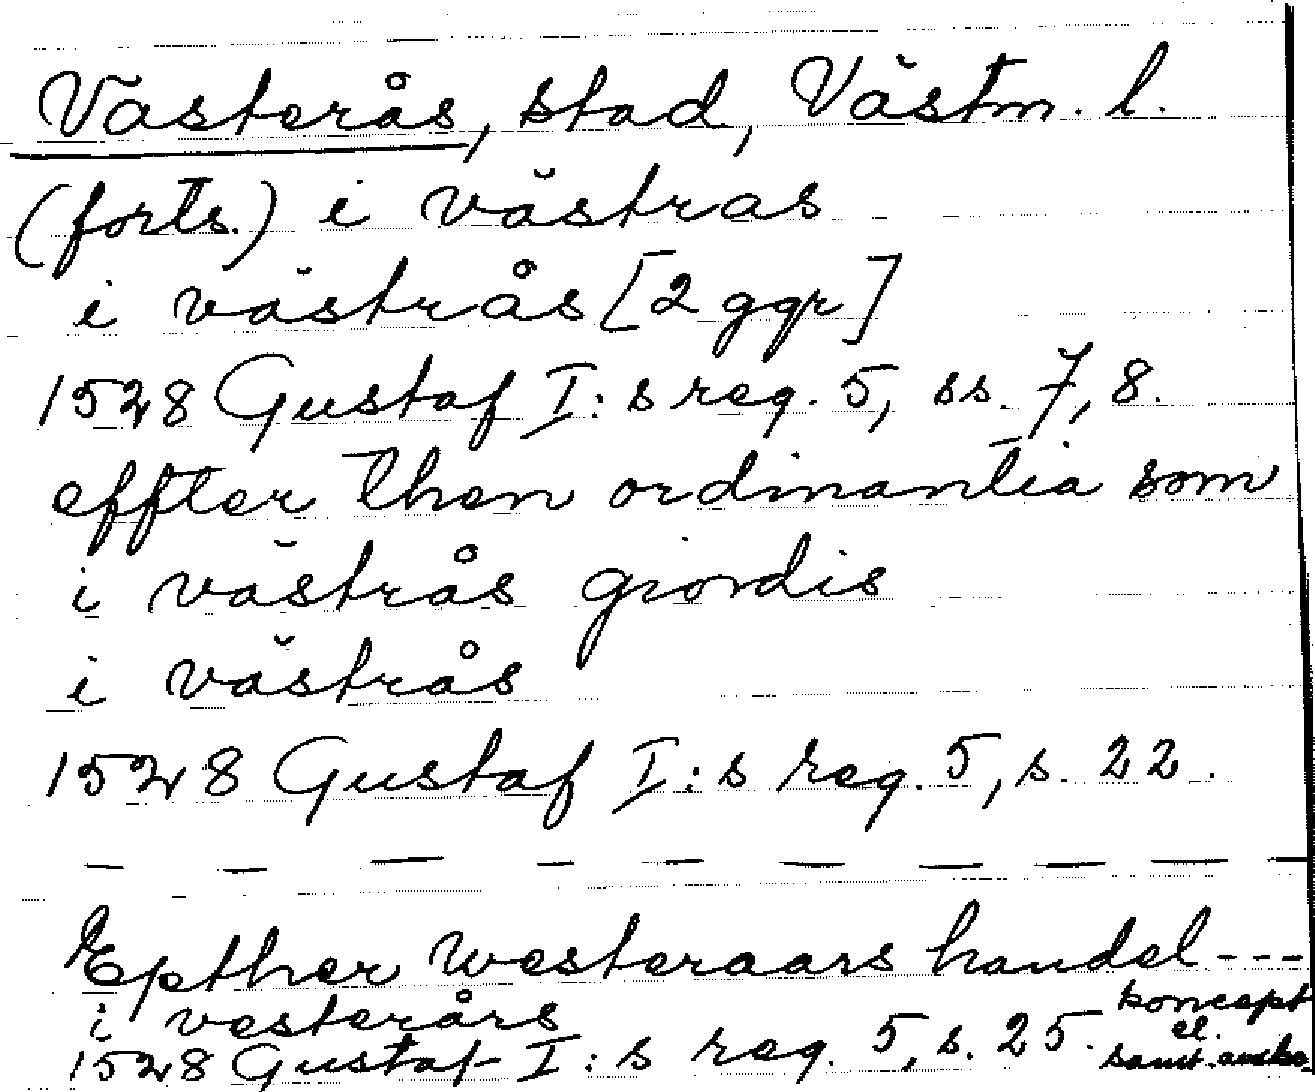 Västerås, stad, Västm. l.
(forts.) i västras
i västrås [2 ggr]
1528 Gustaf I:s reg. 5, ss. 7, 8.
effter then ordinantia som
i västrås giordis
i västrås
1528 Gustaf I:s reg. 5, s. 22.
Epther westeraars handel ---
i vesterårs
koncept
1528 Gustaf I:s reg. 5, s. 25.
el.
samt.